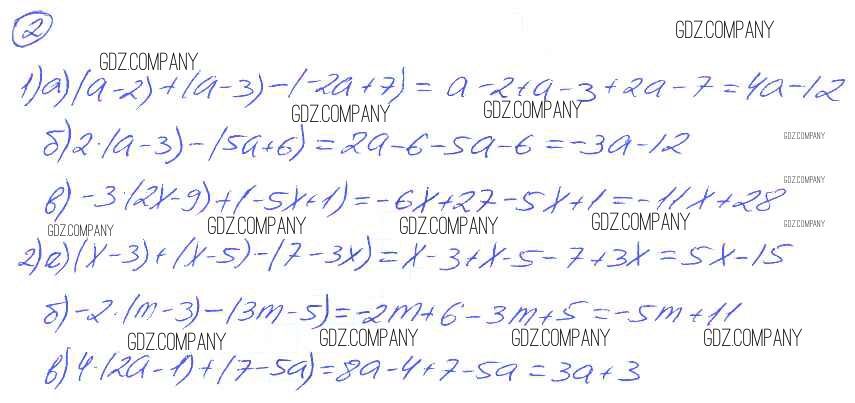 2
GDZ.COMPANY
GDZ.COMPANY
1)а)(a-2)+(a-3)-(-2a+7)=a-2+a-3+2a-7=4a-12
GDZ.COMPANY GDZ.COMPANY
б)2·(a-3)-(5a+6)=2a-6-5a-6=-3a-12 GDZ.COMPANY
GDZ.COMPANY
в)-3·(2x-9)+(-5x+1)=-6x+27-5x+1=-11x+28
GDZ.COMPANY GDZ.COMPANY GDZ.COMPANY GDZ.COMPANY GDZ.COMPANY
2)а)(x-3)+(x-5)-(7-3x)=x-3+x-5-7+3x=5x-15
б)-2·(m-3)-(3m-5)=-2m+6-3m+5=-5m+11
GDZ.COMPANY GDZ.COMPANY GDZ.COMPANY GDZ.COMPANY
в)4·(2a-1)+(7-5a)=8a-4+7-5a=3a+3